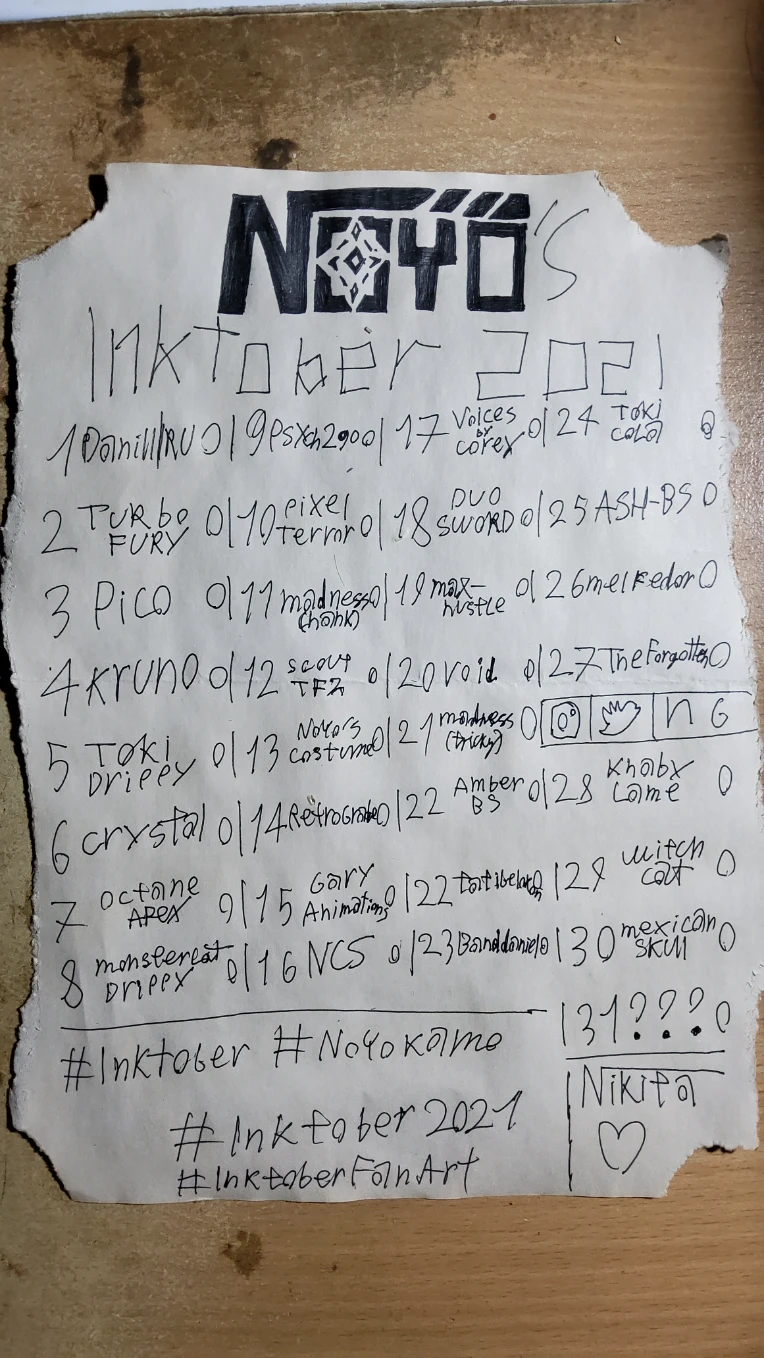 NOYO's
Inktober 2021
1 Danill/RU 0|9 Psych2go 0|17 Voices by Corex 0|24 TOKI COLA 0
2 TURbo FURY 0|10 Pixel Terror 0|18 DUO SWORD 0|25 ASH-BS 0
3 Pico 0|11 madness (hank) 0|19 max-hustle 0|26 melkedor 0
4 KRUNO 0|12 scout TF2 0|20 void 0|27 The Forgotten 0
5 TOKI Drippy 0|13 Noyo's costume 0|21 madness (tricky) 0 n G
6 crystal 0|14 RetroGrabe 0|22 Amber BS 0|28 Khaby Lame 0
7 octane APEX 0|15 Gary Animations 0|22 0|29 witch cat 0
8 monstercat Drippy 0|16 NCS 0|23 Banddaniel 0|30 mexican SKUll 0
|31???0
#Inktober #Noyokamo
Nikita
#Inktober2021
#InktoberFanArt